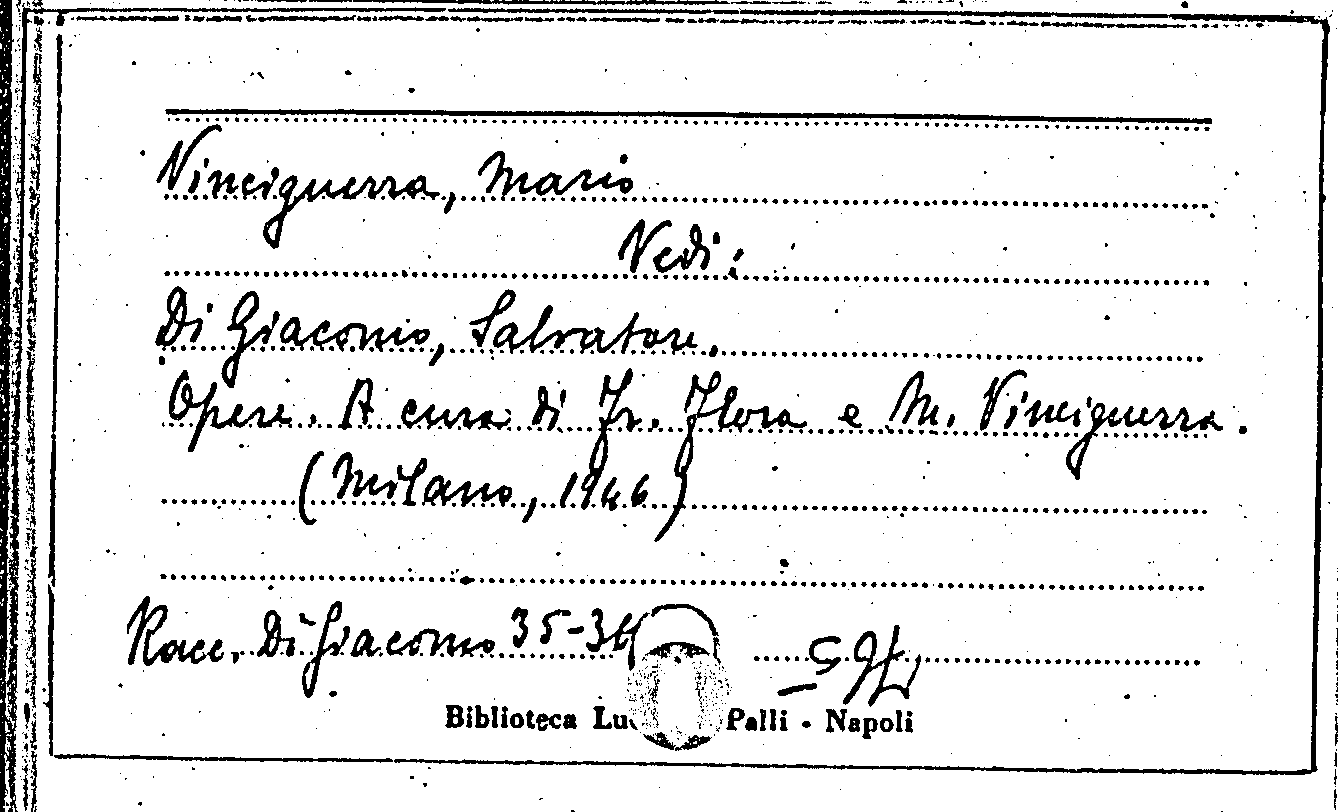 Vinciguerra, Mario
Vedi:
Di Giacomo, Salvatore.
Opere. A cura di Fr. Flora e M. Vinciguerra.
(Milano, 1946)
Racc. Di Giacomo 35-36
Biblioteca Luc Palli - Napoli